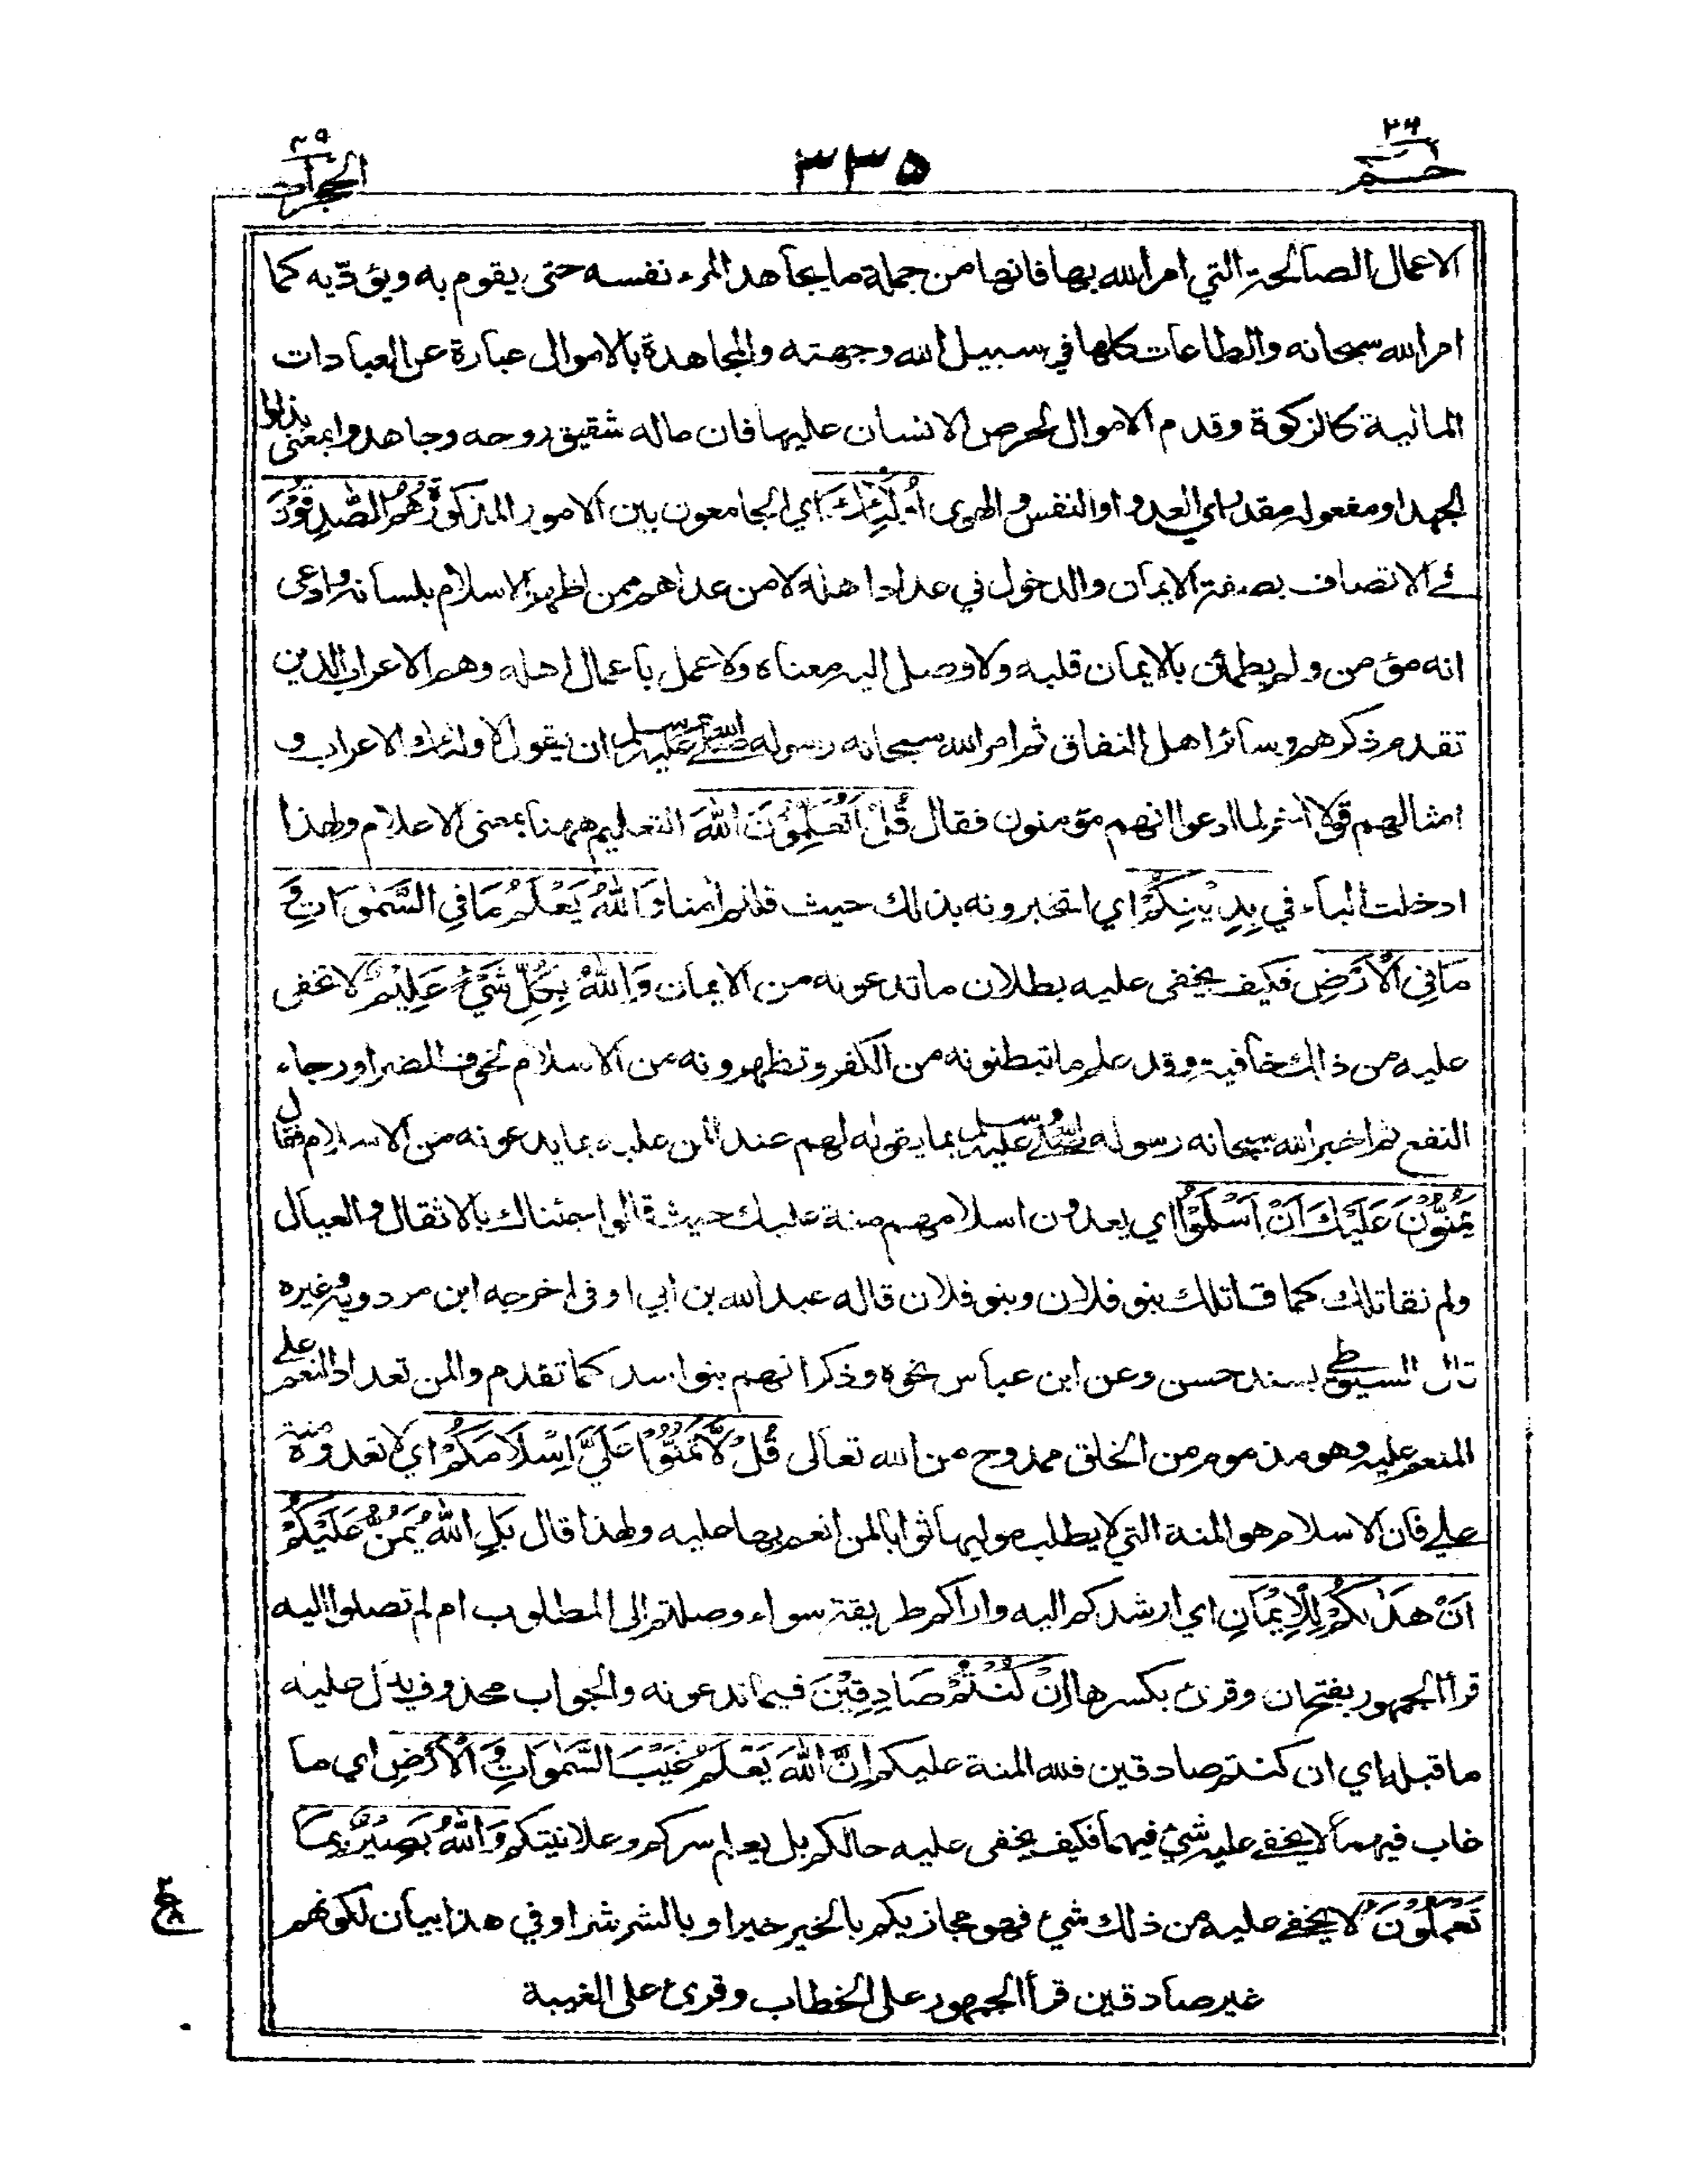 حـم ٢٦
٣٣٥
الحجرات ٤٩
الاعمال الصالحة التي امر الله بها فانها من جملة ما يجاهد المرء نفسه حتى يقوم به ويؤدّيه كما
امر الله سبحانه والطاعات كلها في سبيل الله وجهته والمجاهدة بالاموال عبارة عن العبادات
المالية كالزكوة وقدم الاموال لحرص الانسان عليها فان ماله شقيق روحه وجاهدوا بمعنى بذلوا
الجهد او مفعوله مقدر اي العدو او النفس والهوى أُولٰٓئِكَ اي الجامعون بين الامور المذكورة هُمُ الصّٰدِقُوْنَ
في الاتصاف بصفة الايمان والدخول في عداد اهله لا من عداهم ممن اظهر الاسلام بلسانه وادعى
انه مؤمن ولم يطمئن بالايمان قلبه ولا وصل اليه معناه ولا عمل باعمال اهله وهم الاعراب الذين
تقدم ذكرهم وسائر اهل النفاق ثم امر الله سبحانه رسوله صلى الله عليه وسلم ان يقول لأولئك الاعراب و
امثالهم قولا آخر لما ادعوا انهم مؤمنون فقال قُلْ اَتُعَلِّمُوْنَ اللّٰهَ التعليم ههنا بمعنى الاعلام ولهذا
ادخلت الباء في بِدِيْنِكُمْ اي اتخبرونه بذلك حيث قلتم آمنا وَاللّٰهُ يَعْلَمُ مَا فِي السَّمٰوَاتِ وَ
مَا فِي الْاَرْضِ فكيف يخفى عليه بطلان ما تدعونه من الايمان وَاللّٰهُ بِكُلِّ شَيْءٍ عَلِيْمٌ لا تخفى
عليه من ذلك خافية وقد علم ما تبطنونه من الكفر وتظهرونه من الاسلام لخوف الضر او رجاء
النفع ثم اخبر الله سبحانه رسوله صلى الله عليه وسلم بما يقوله لهم عند المن عليه بما يدعونه من الاسلام فقال
يَمُنُّوْنَ عَلَيْكَ اَنْ اَسْلَمُوْا اي يعدون اسلامهم منة عليك حيث قالوا جئناك بالاثقال والعيال
ولم نقاتلك كما قاتلك بنو فلان وبنو فلان قاله عبد الله بن ابي اوفى اخرجه ابن مردويه وغيره
قال السيوطي بسند حسن وعن ابن عباس نحوه وذكر انهم بنو اسد كما تقدم والمن تعداد النعم على
المنعم عليه وهو مذموم من الخلق ممدوح من الله تعالى قُلْ لَّا تَمُنُّوْا عَلَيَّ اِسْلَامَكُمْ اي لا تعدوه منة
علي فان الاسلام هو المنة التي لا يطلب موليها ثوابا لمن انعم بها عليه ولهذا قال بَلِ اللّٰهُ يَمُنُّ عَلَيْكُمْ
اَنْ هَدٰىكُمْ لِلْاِيْمَانِ اي ارشدكم اليه واراكم طريقة سواء وصلتم الى المطلوب ام لم تصلوا اليه
قرأ الجمهور بفتح ان وقرئ بكسرها اِنْ كُنْتُمْ صَادِقِيْنَ فيما تدعونه والجواب محذوف يدل عليه
ما قبله اي ان كنتم صادقين فلله المنة عليكم اِنَّ اللّٰهَ يَعْلَمُ غَيْبَ السَّمٰوَاتِ وَ الْاَرْضِ اي ما
غاب فيهما لا يخفى عليه شيء فيهما فكيف يخفى عليه حالكم بل يعلم سركم وعلانيتكم وَاللّٰهُ بَصِيْرٌ بِمَا
تَعْمَلُوْنَ لا يخفى عليه من ذلك شيء فهو مجازيكم بالخير خيرا وبالشر شرا وفي هذا بيان لكونهم
غير صادقين قرأ الجمهور على الخطاب وقرئ على الغيبة